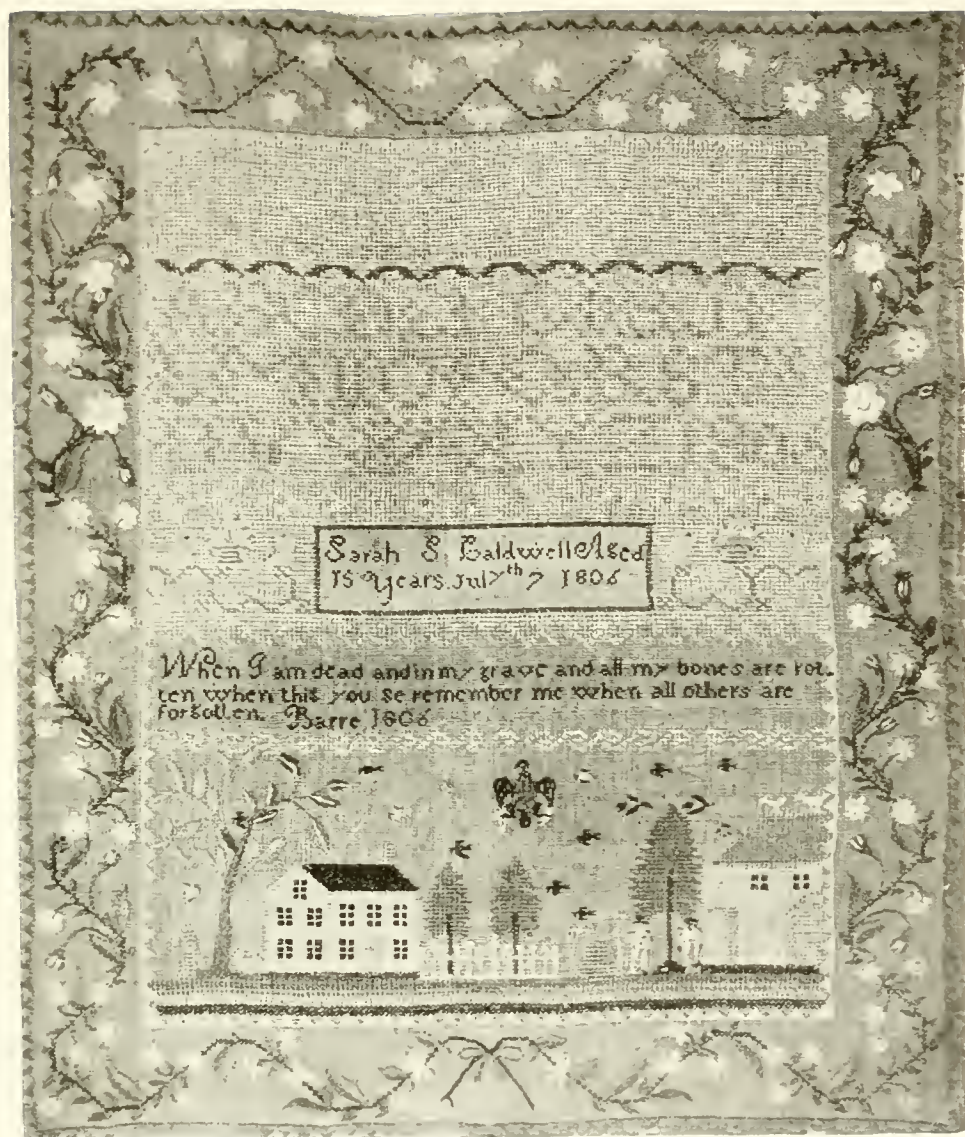 Sarah S. Caldwell Aged
15 Years. July th 7 1806
When I am dead and in my grave and all my bones are rot
ten when this you se remember me when all others are
forgotten. Barre 1806